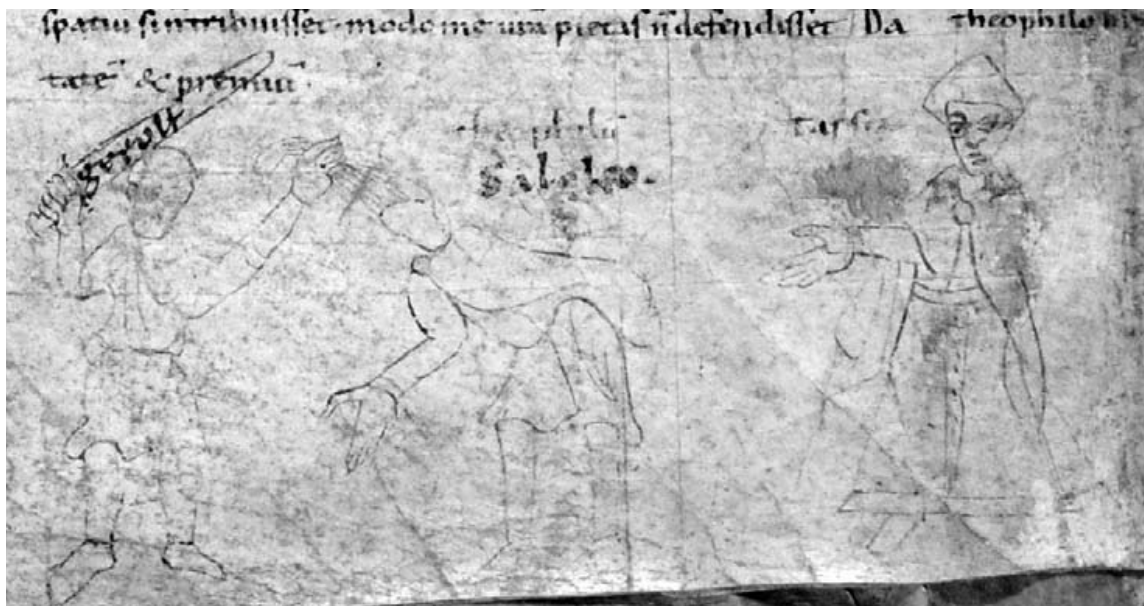 spatiū tribuisset · modo me ur̄a pietas n̄ defendisset Da theophilo
tatē & premiū ·
gerolt
theophilū
tarsia